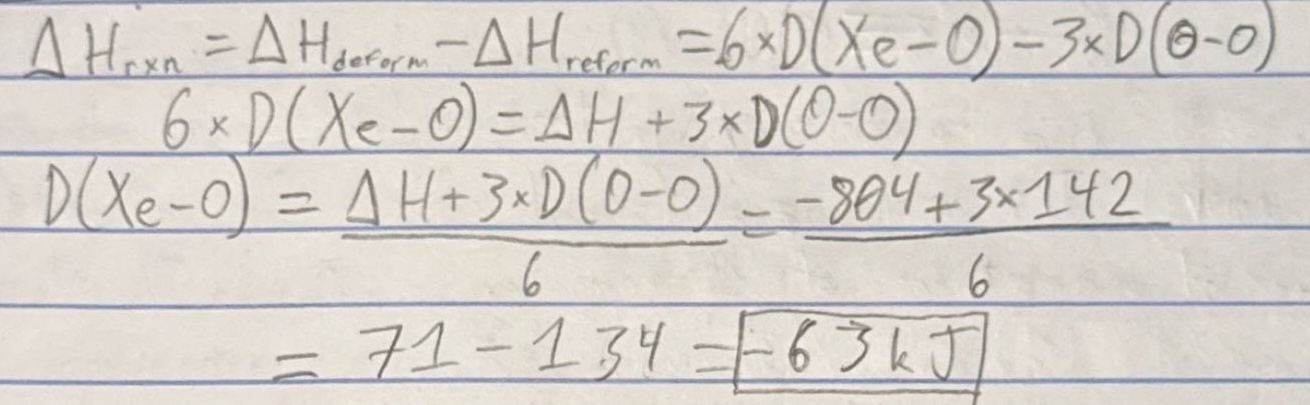 ΔH_rxn = ΔH_deform − ΔH_reform = 6×D(Xe−O) − 3×D(O−O)
6×D(Xe−O) = ΔH + 3×D(O−O)
D(Xe−O) = (ΔH + 3×D(O−O))/6 = (−804 + 3×142)/6
= 71 − 134 = −63 kJ